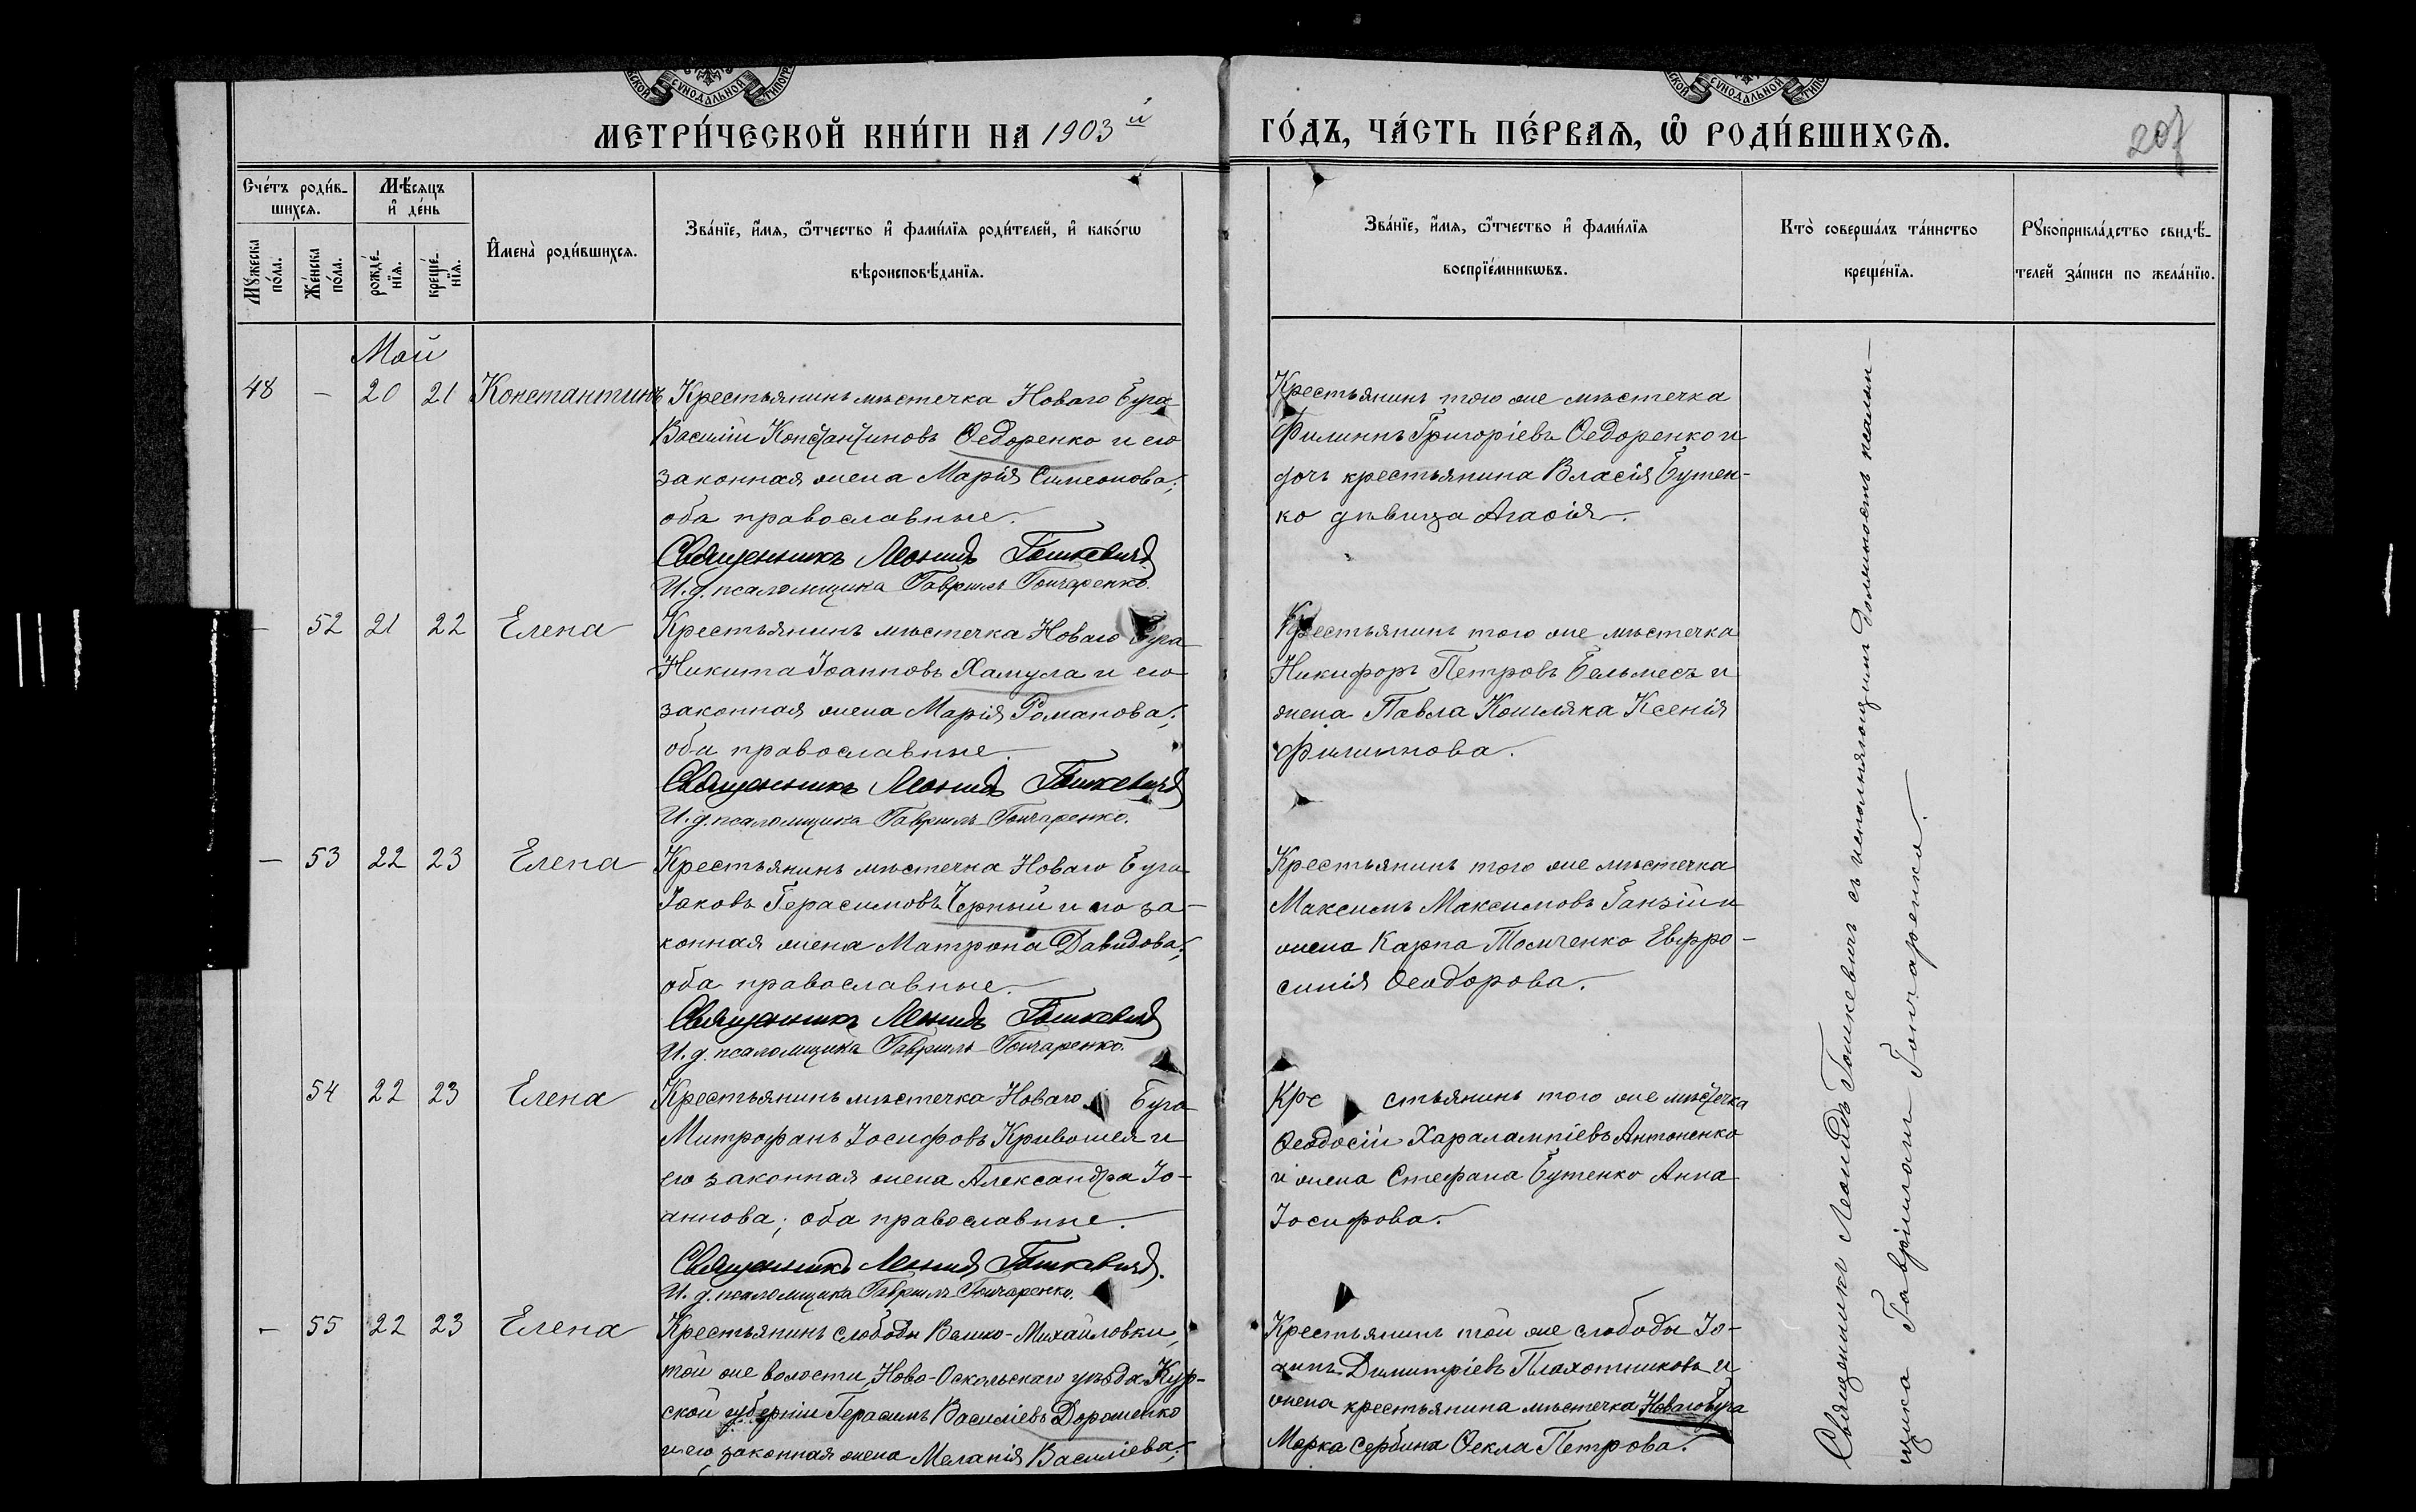 МЕТРИ́ЧЕСКОЙ КНИ́ГИ НА 1903 й ГО́ДЪ, ЧА́СТЬ ПЕ́РВАѦ, Ѡ҆ РОДИ́ВШИХСѦ.
Сче́тъ роди́в-
шихсѧ.
Мѣ́сѧцъ
и҆ де́нь
Мꙋ́жеска
по́ла.
Же́нска
по́ла.
рожде́-
нїѧ.
креще́-
нїѧ.
И҆мена̀ роди́вшихсѧ.
Зва́нїе, и҆́мѧ, ѻ҆́тчество и҆ фами́лїѧ роди́телей, и҆ како́гѡ
вѣроисповѣ́данїѧ.
Зва́нїе, и҆́мѧ, ѻ҆́тчество и҆ фами́лїѧ
воспрїе́мникѡвъ.
Кто̀ соверша́лъ та́инство
креще́нїѧ.
Рꙋкоприкла́дство свидѣ́-
телей за́писи по жела́нїю.
Май
48 - 20 21 Константинъ Крестьянинъ мѣстечка Новаго Буга
Василій Константиновъ Ѳедоренко и его
законная жена Марія Симеонова;
оба православные.
Священникъ Леонидъ Гошкевичъ
И. д. псаломщика Гавриилъ Гончаренко.
Крестьянинъ того же мѣстечка
Филиппъ Григоріевъ Ѳедоренко и
дочь крестьянина Власія Бутен-
ко дѣвица Агаѳія.
- 52 21 22 Елена Крестьянинъ мѣстечка Новаго Буга
Никита Іоанновъ Хамула и его
законная жена Марія Романова;
оба православные.
Священникъ Леонидъ Гошкевичъ
И. д. псаломщика Гавриилъ Гончаренко.
Крестьянинъ того же мѣстечка
Никифоръ Петровъ Бельмесъ и
жена Павла Кошляка Ксенія
Филиппова.
- 53 22 23 Елена Крестьянинъ мѣстечка Новаго Буга
Іаковъ Герасимовъ Черный и его за-
конная жена Матрона Давидова;
оба православные.
Священникъ Леонидъ Гошкевичъ
И. д. псаломщика Гавриилъ Гончаренко.
Крестьянинъ того же мѣстечка
Максимъ Максимовъ Ганзій и
жена Карпа Томченко Евфро-
синія Ѳеодорова.
54 22 23 Елена Крестьянинъ мѣстечка Новаго Буга
Митрофанъ Іосифовъ Кривошея и
его законная жена Александра Іо-
аннова; оба православные.
Священникъ Леонидъ Гошкевичъ.
И. д. псаломщика Гавриилъ Гончаренко.
Крестьянинъ того же мѣстечка
Ѳеодосій Харалампіевъ Антоненко
и жена Стефана Бутенко Анна
Іосифова.
- 55 22 23 Елена Крестьянинъ слободы Велико-Михайловки,
той же волости, Ново-Оскольскаго уѣзда Кур-
ской губерніи Герасимъ Василіевъ Дорошенко
и его законная жена Меланія Василіева;
Крестьянинъ той же слободы Іо-
аннъ Димитріевъ Плахотниковъ и
жена крестьянина мѣстечка Новаго Буга
Марка Сербина Ѳекла Петрова.
Священникъ Леонидъ Гошкевичъ съ исполняющимъ должность псалом-
щика Гавріиломъ Гончаренко.